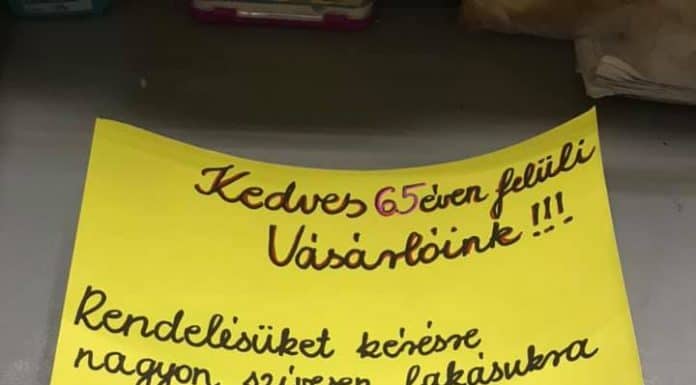 Kedves 65 éven felüli
Vásárlóink!!!
Rendelésüket kérésre
nagyon szívesen lakásukra